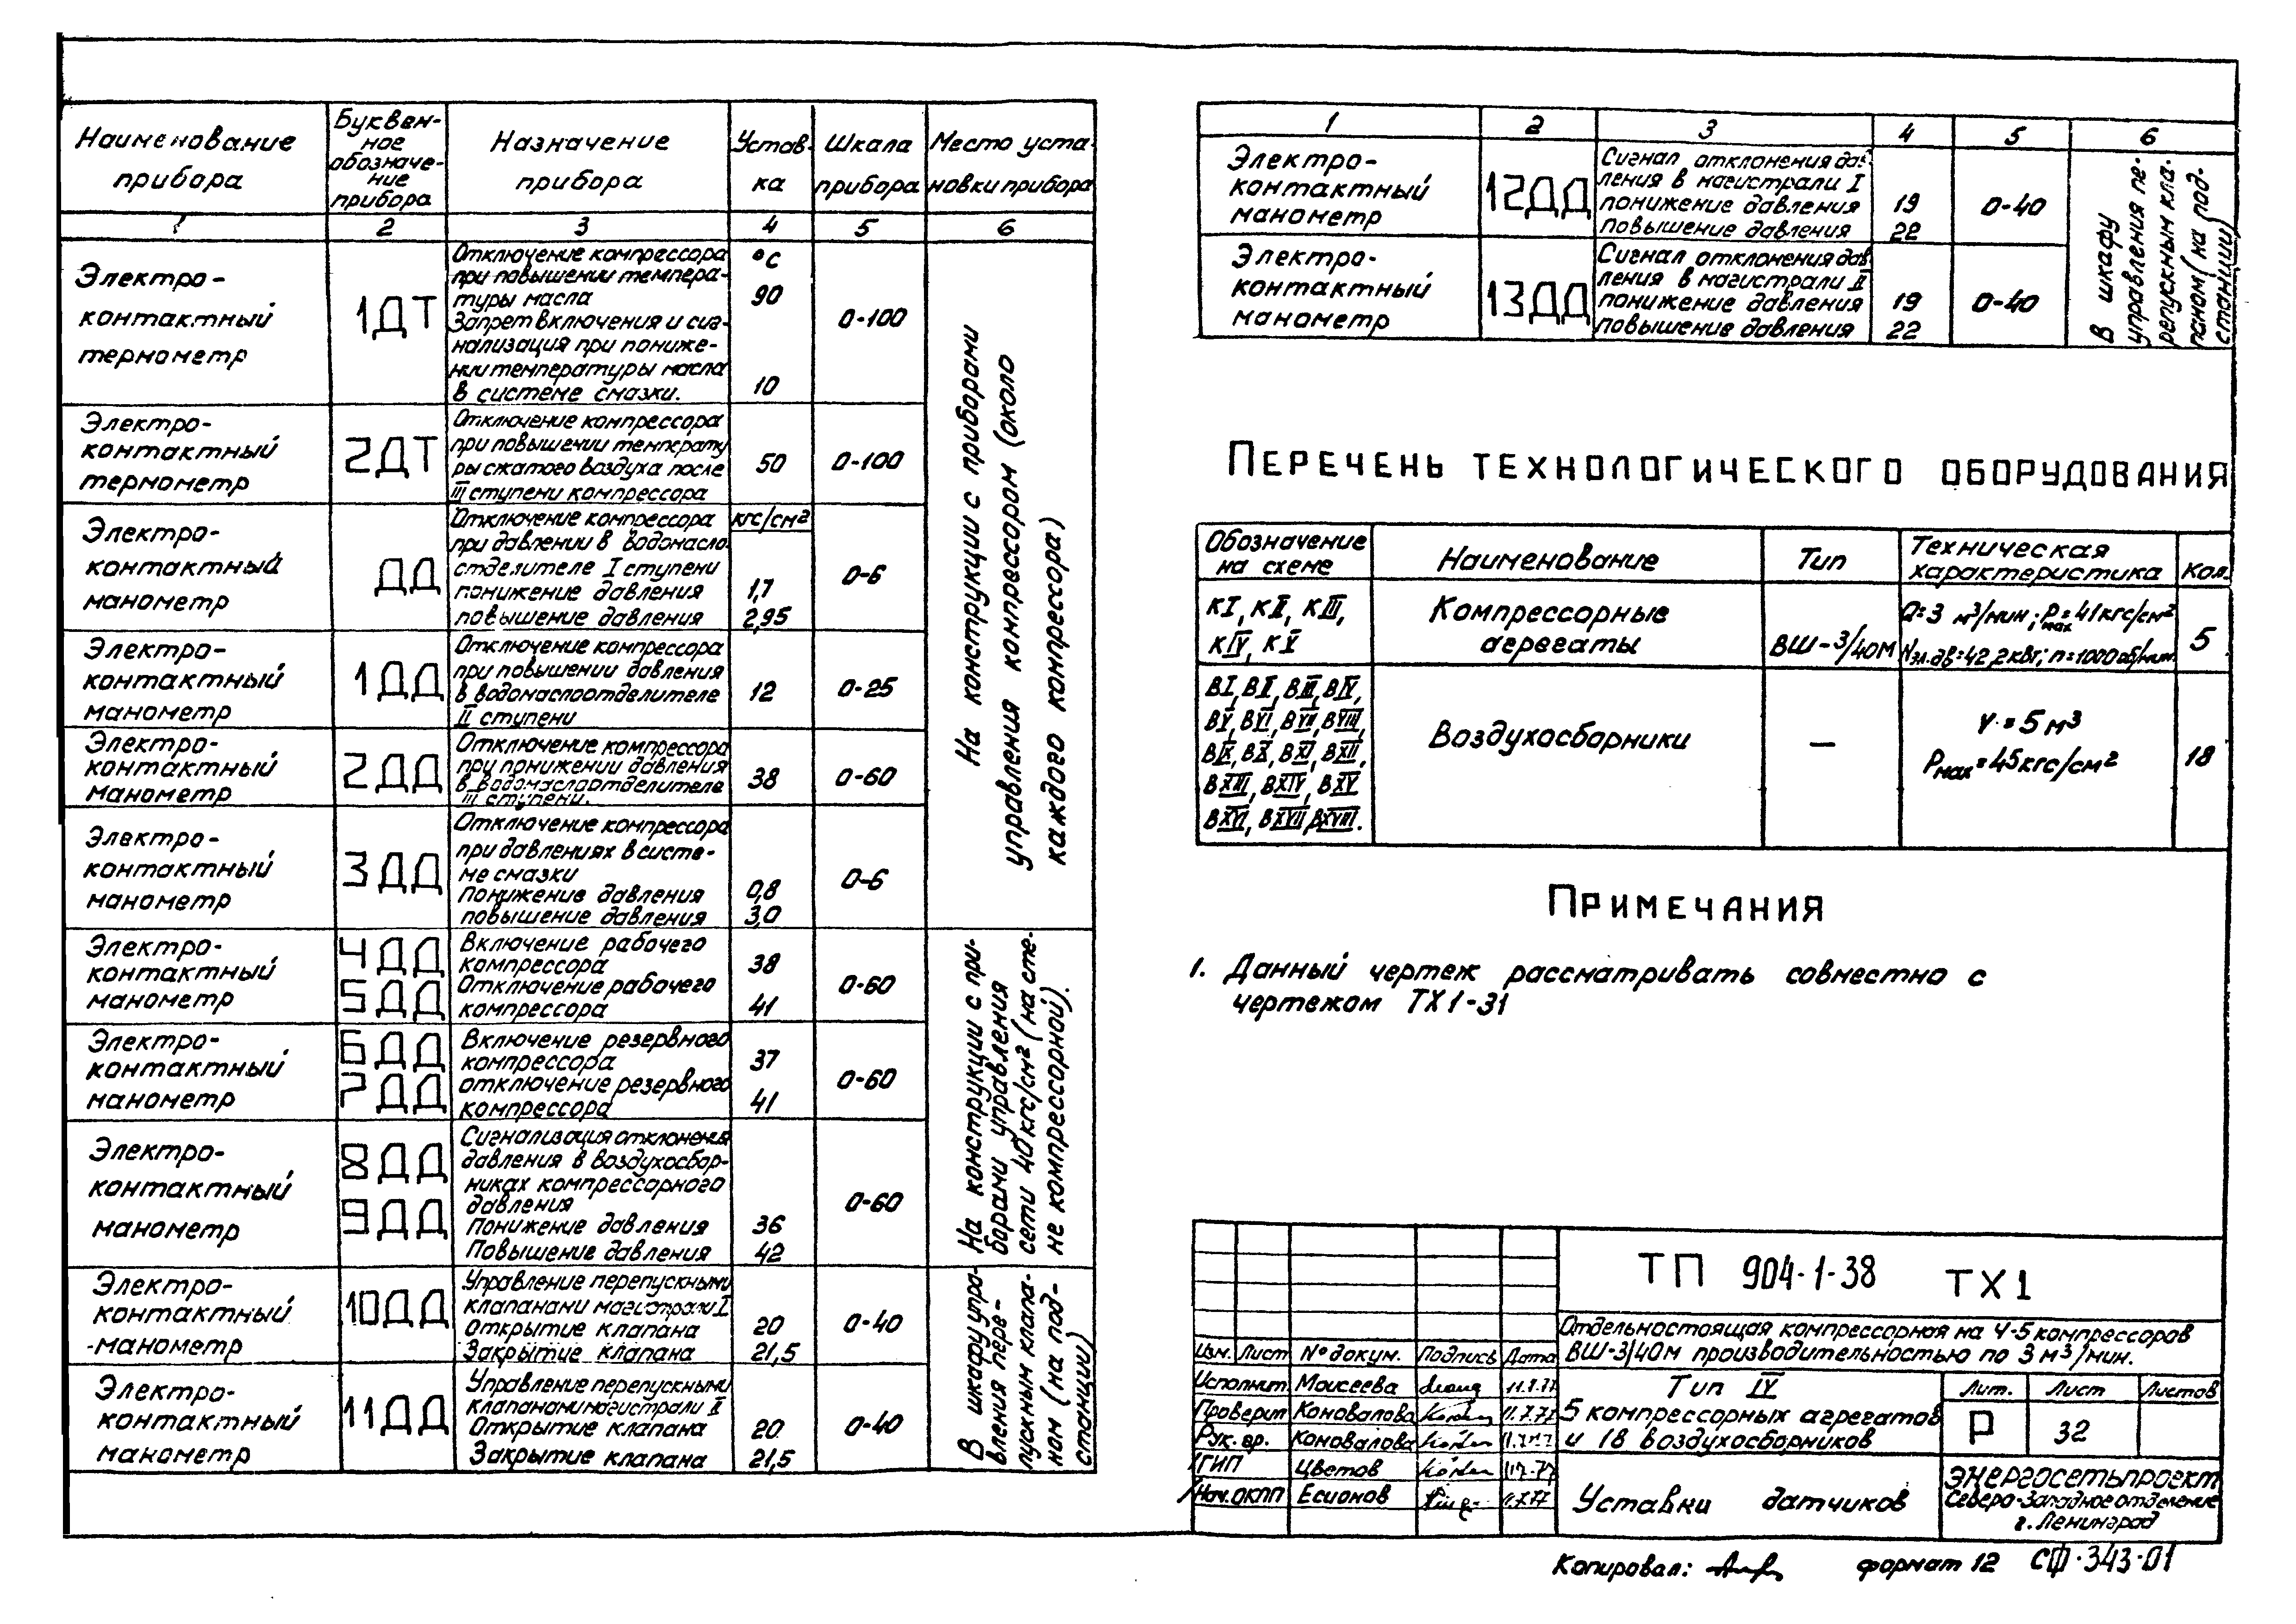 Наименование прибора
Буквенное обозначение прибора
Назначение прибора
Уставка
Шкала прибора
Место установки прибора
1 2 3 4 5 6
Электро-
контактный
термометр
1ДТ
Отключение компрессора
при повышении темпера-
туры масла
Запрет включения и сиг-
нализация при пониже-
нии температуры масла
в системе смазки.
°С
90
10
0-100
Электро-
контактный
термометр
2ДТ
Отключение компрессора
при повышении температу
ры сжатого воздуха после
III ступени компрессора
50
0-100
Электро-
контактный
манометр
ДД
Отключение компрессора
при давлении в водомасло
отделителе I ступени
понижение давления
повышение давления
кгс/см²
1,7
2,95
0-6
Электро-
контактный
манометр
1ДД
Отключение компрессора
при повышении давления
в водомаслоотделителе
II ступени
12
0-25
Электро-
контактный
манометр
2ДД
Отключение компрессора
при понижении давления
в водомаслоотделителе
III ступени.
38
0-60
Электро-
контактный
манометр
3ДД
Отключение компрессора
при давлениях в систе-
ме смазки
понижение давления
повышение давления
0,8
3,0
0-6
На конструкции с приборами
управления компрессором (около
каждого компрессора)
Электро-
контактный
манометр
4ДД
5ДД
Включение рабочего
компрессора
Отключение рабочего
компрессора
38
41
0-60
Электро-
контактный
манометр
6ДД
7ДД
Включение резервного
компрессора
отключение резервного
компрессора
37
41
0-60
Электро-
контактный
манометр
8ДД
9ДД
Сигнализация отклонения
давления в воздухосбор-
никах компрессорного
давления
Понижение давления
Повышение давления
36
42
0-60
На конструкции с при-
борами управления
сети 40 кгс/см² (на сте-
не компрессорной).
Электро-
контактный
манометр
10ДД
Управление перепускными
клапанами магистрали I
открытие клапана
Закрытие клапана
20
21,5
0-40
Электро-
контактный
манометр
11ДД
Управление перепускными
клапанами магистрали II
Открытие клапана
Закрытие клапана
20
21,5
0-40
В шкафу упра-
вления пере-
пускным клапа-
ном (на под-
станции)
1 2 3 4 5 6
Электро-
контактный
манометр
12ДД
Сигнал отклонения дав-
ления в магистрали I
понижение давления
повышение давления
19
22
0-40
Электро-
контактный
манометр
13ДД
Сигнал отклонения дав
ления в магистрали II
понижение давления
повышение давления
19
22
0-40
В шкафу
управления пе-
репускным кла-
паном (на под-
станции)
Перечень технологического оборудования
Обозначение на схеме
Наименование
Тип
Техническая характеристика
Кол.
КI, КII, КIII,
КIV, КV
Компрессорные
агрегаты
ВШ-3/40М
Q=3 м³/мин; Pmax=41кгс/см²
Nэл.дв=42,2квт; n=1000об/мин
5
ВI, ВII, ВIII, ВIV,
ВV, ВVI, ВVII, ВVIII,
ВIX, ВX, ВXI, ВXII,
ВXIII, ВXIV, ВXV
ВXVI, ВXVII, ВXVIII.
Воздухосборники
—
V=5м³
Pмах=45кгс/см²
18
Примечания
1. Данный чертеж рассматривать совместно с
чертежом ТХ1-31
ТП 904-1-38 ТХ1
Отдельностоящая компрессорная на 4-5 компрессоров
ВШ-3/40м производительностью по 3 м³/мин.
Изм. Лист № докум. Подпись Дата
Исполнит Моисеева 11.7.77
Проверил Коновалова 11.7.77
Рук. гр. Коновалова 11.7.77
ГИП Цветов 11.7.77
Нач.ОКПП Есионов 11.7.77
Тип IV
5 компрессорных агрегатов
и 18 воздухосборников
Лит. Лист Листов
Р 32
Уставки датчиков
Энергосетьпроект
Северо-Западное отделение
г. Ленинград
Копировал: формат 12 СФ-343-01